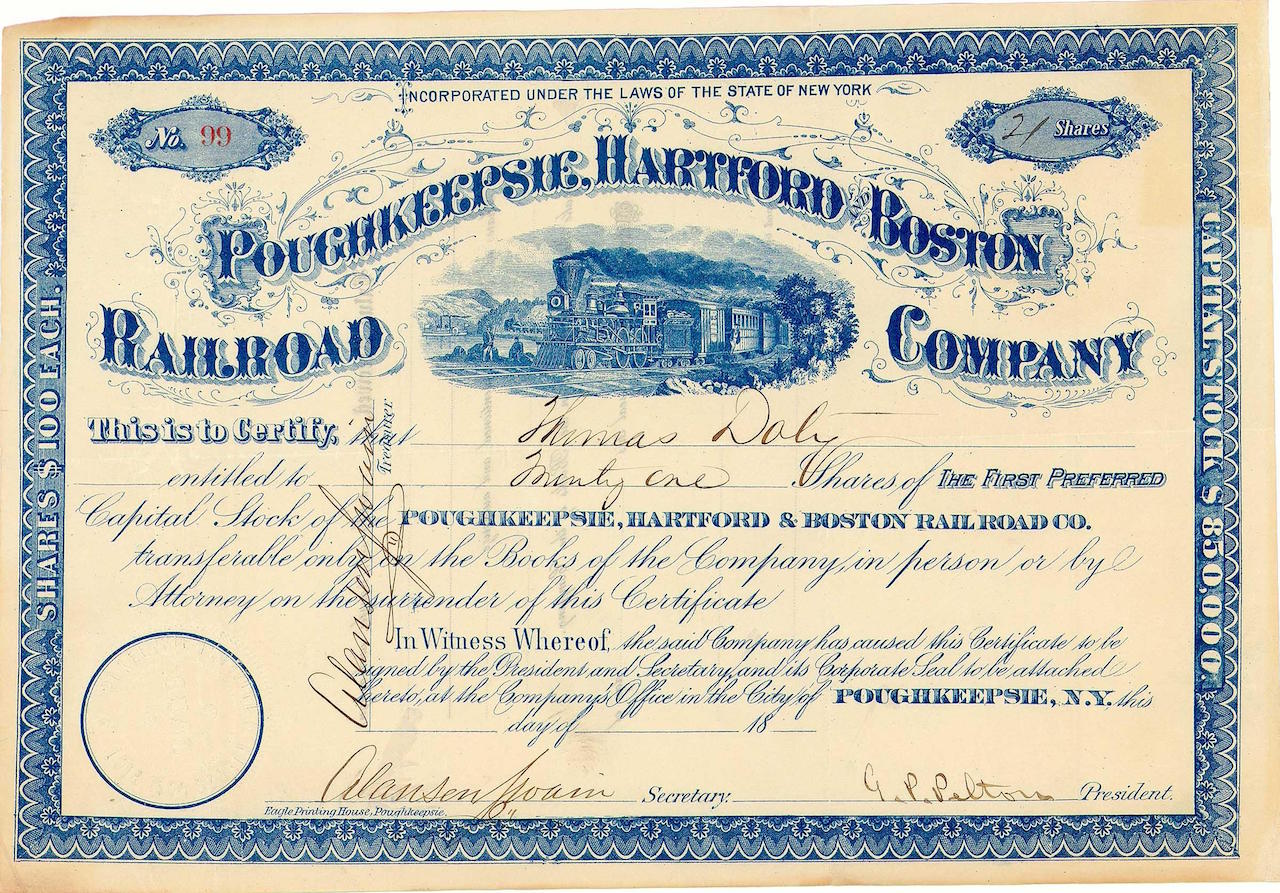 INCORPORATED UNDER THE LAWS OF THE STATE OF NEW YORK
No. 99
21 Shares
POUGHKEEPSIE, HARTFORD AND BOSTON
RAILROAD COMPANY
SHARES $100 EACH.
CAPITAL STOCK $850,000.
This is to Certify, that Thomas Doty
entitled to Twenty one Shares of THE FIRST PREFERRED
Capital Stock of the POUGHKEEPSIE, HARTFORD & BOSTON RAIL ROAD CO.
transferable only on the Books of the Company, in person or by
Attorney on the surrender of this Certificate
In Witness Whereof, the said Company has caused this Certificate to be
signed by the President and Secretary, and its Corporate Seal to be attached
hereto, at the Company's Office in the City of POUGHKEEPSIE, N.Y. this
day of 18
Treasurer
Secretary.
G. P. Pelton President.
Eagle Printing House, Poughkeepsie.